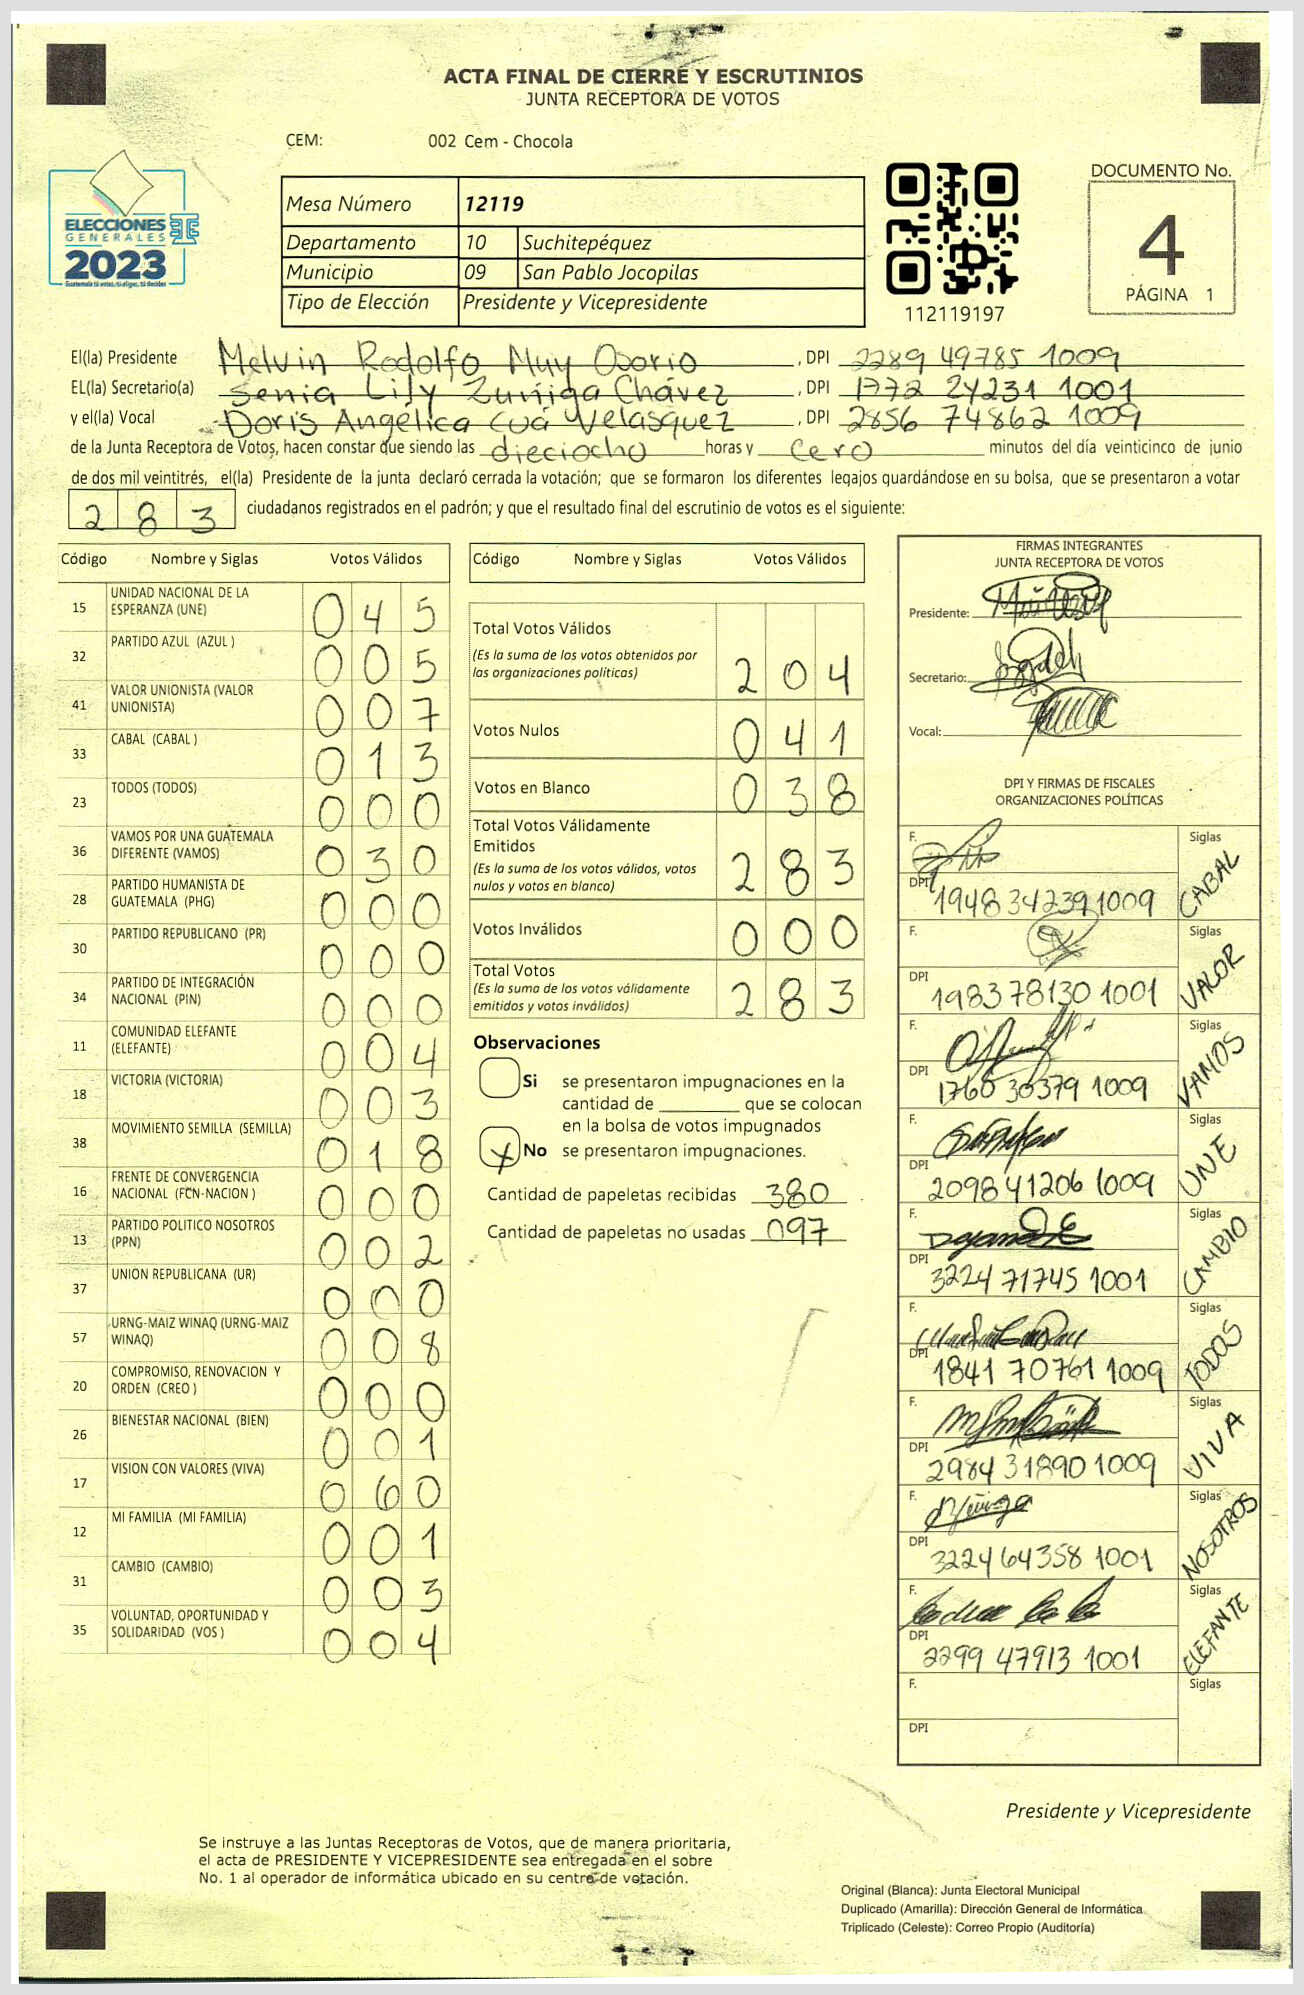 ACTA FINAL DE CIERRE Y ESCRUTINIOS
JUNTA RECEPTORA DE VOTOS
CEM: 002 Cem - Chocola
ELECCIONES
GENERALES
2023
Guatemala tú votas, tú eliges, tú decides
Mesa Número 12119
Departamento 10 Suchitepéquez
Municipio 09 San Pablo Jocopilas
Tipo de Elección Presidente y Vicepresidente
112119197
DOCUMENTO No.
4
PÁGINA 1
El(la) Presidente Melvin Rodolfo Muy Osorio, DPI 2289 49785 1009
EL(la) Secretario(a) Senia Lily Zuñiga Chávez, DPI 1772 24231 1001
y el(la) Vocal Doris Angélica Cuá Velasquez, DPI 2856 74862 1009
de la Junta Receptora de Votos, hacen constar que siendo las dieciocho horas y cero minutos del día veinticinco de junio
de dos mil veintitrés, el(la) Presidente de la junta declaró cerrada la votación; que se formaron los diferentes legajos guardándose en su bolsa, que se presentaron a votar
283 ciudadanos registrados en el padrón; y que el resultado final del escrutinio de votos es el siguiente:
Código Nombre y Siglas Votos Válidos
15 UNIDAD NACIONAL DE LA ESPERANZA (UNE) 045
32 PARTIDO AZUL (AZUL ) 005
41 VALOR UNIONISTA (VALOR UNIONISTA) 007
33 CABAL (CABAL ) 013
23 TODOS (TODOS) 000
36 VAMOS POR UNA GUATEMALA DIFERENTE (VAMOS) 030
28 PARTIDO HUMANISTA DE GUATEMALA (PHG) 000
30 PARTIDO REPUBLICANO (PR) 000
34 PARTIDO DE INTEGRACIÓN NACIONAL (PIN) 000
11 COMUNIDAD ELEFANTE (ELEFANTE) 004
18 VICTORIA (VICTORIA) 003
38 MOVIMIENTO SEMILLA (SEMILLA) 018
16 FRENTE DE CONVERGENCIA NACIONAL (FCN-NACION ) 000
13 PARTIDO POLITICO NOSOTROS (PPN) 002
37 UNION REPUBLICANA (UR) 000
57 URNG-MAIZ WINAQ (URNG-MAIZ WINAQ) 008
20 COMPROMISO, RENOVACION Y ORDEN (CREO ) 000
26 BIENESTAR NACIONAL (BIEN) 001
17 VISION CON VALORES (VIVA) 060
12 MI FAMILIA (MI FAMILIA) 001
31 CAMBIO (CAMBIO) 003
35 VOLUNTAD, OPORTUNIDAD Y SOLIDARIDAD (VOS ) 004
Código Nombre y Siglas Votos Válidos
Total Votos Válidos
(Es la suma de los votos obtenidos por
las organizaciones políticas) 204
Votos Nulos 041
Votos en Blanco 038
Total Votos Válidamente
Emitidos
(Es la suma de los votos válidos, votos
nulos y votos en blanco) 283
Votos Inválidos 000
Total Votos
(Es la suma de los votos válidamente
emitidos y votos inválidos) 283
Observaciones
Si se presentaron impugnaciones en la
cantidad de ________ que se colocan
en la bolsa de votos impugnados
X No se presentaron impugnaciones.
Cantidad de papeletas recibidas 380
Cantidad de papeletas no usadas 097
FIRMAS INTEGRANTES
JUNTA RECEPTORA DE VOTOS
Presidente:
Secretario:
Vocal:
DPI Y FIRMAS DE FISCALES
ORGANIZACIONES POLÍTICAS
F. Siglas CABAL
DPI 1948 34239 1009
F. Siglas VALOR
DPI 1983 78130 1001
F. Siglas VAMOS
DPI 1760 30379 1009
F. Siglas UNE
DPI 2098 41206 1009
F. Siglas CAMBIO
DPI 3224 71745 1001
F. Siglas TODOS
DPI 1841 70761 1009
F. Siglas VIVA
DPI 2984 31890 1009
F. Siglas NOSOTROS
DPI 3224 64358 1001
F. Siglas ELEFANTE
DPI 2299 47913 1001
F. Siglas
DPI
Presidente y Vicepresidente
Se instruye a las Juntas Receptoras de Votos, que de manera prioritaria,
el acta de PRESIDENTE Y VICEPRESIDENTE sea entregada en el sobre
No. 1 al operador de informática ubicado en su centro de votación.
Original (Blanca): Junta Electoral Municipal
Duplicado (Amarilla): Dirección General de Informática
Triplicado (Celeste): Correo Propio (Auditoría)